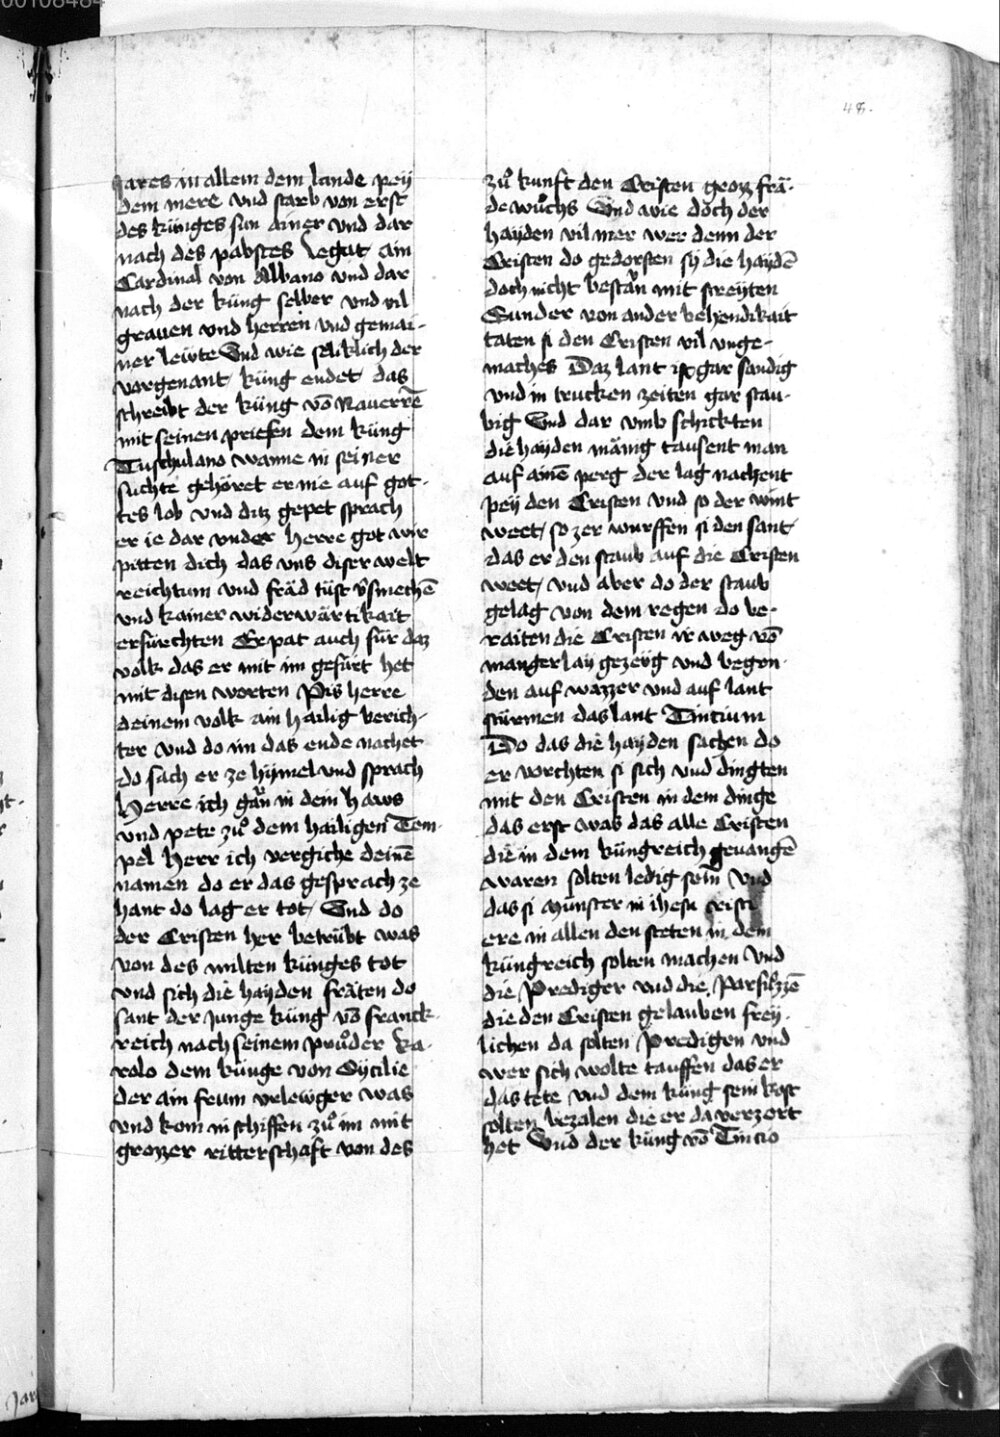 00108484
48.
Jares in allem dem lande pey
dem mere vnd starb von erst
des künges sun ainer vnd dar
nach des pabstes Legat ain
Cardinal von Albano vnd dar
nach der küng selber vnd vil
grauen vnd herren vnd gemai-
ner lewte Vnd wie säliklich der
vorgenant küng endet das
schreibt der küng võ Nauerrẽ
mit seinen priefen dem küng
Tuschulano wanne in seiner
suchte gehöret er nie auf got-
tes lob vnd ditz gepet sprach
er ie dar vnder herre got wir
pitten dich das vns diser welt
reichtum vnd fräd tüst v̂smechẽ
vnd kainer widerwärtikait
erfürchten Er pat auch für daz
volk das er mit im gefürt het
mit disen worten Pis herre
deinem volk ain hailig berich-
ter vnd do im das ende nachet
do sach er ze hymel vnd sprach
Herre ich gan in dein haws
vnd pete zuͦ dem hailigen Tem-
pel Herr ich vergiche deinẽ
namen do er das gesprach ze
hant do lag er tot Vnd do
der Cristen her betrübt was
von des milten künges tot
vnd sich die hayden fräten do
sant der Junge küng võ franck-
reich nach seinem pruͦder Ka-
rolo dem künge von Cycilie
der ain frum vrlewger was
vnd kom in schiffen zuͦ im mit
grozzer ritterschaft von des
zuͦ kunft den Cristen grozz frä-
de wuͦchs Vnd wie doch der
hayden vil mer wer denn der
Cristen do gedorsten sy die haydẽ
doch nicht bestan mit streyten
Sunder von ander behendikait
taten si den Cristen vil vnge-
maches Daz lant ist gar sandig
vnd in trucken zeiten gar stau-
big Vnd dar vmb schickten
die hayden mänig tausent man
auf ainẽ perg der lag nachent
pey den Cristen vnd so der wint
weet so zer wurffen si den sant
das er den staub auf die Cristen
weet vnd aber do der staub
gelag von dem regen do be-
raiten die Cristen ir weg võ
manger lay gezeüg vnd begon-
den auf wazzer vnd auf lant
stürmen das lant Tincium
Do das die hayden sachen do
er vorchten si sich vnd dingten
mit den Cristen in dem dinge
das erst was das alle Cristen
die in dem küngreich geuangẽ
waren solten ledig sein Vnd
das si münster in ihesu cristi
ere in allen den steten in dem
küngreich solten machen Vnd
die Prediger vnd die Parfüzzẽ
die den Cristen gelauben frey-
lichen da solten Predigen vnd
wer sich wolte tauffen das er
das tete vnd dem küng sein kost
solten bezalen die er da verzert
het Vnd der küng võ Tincio